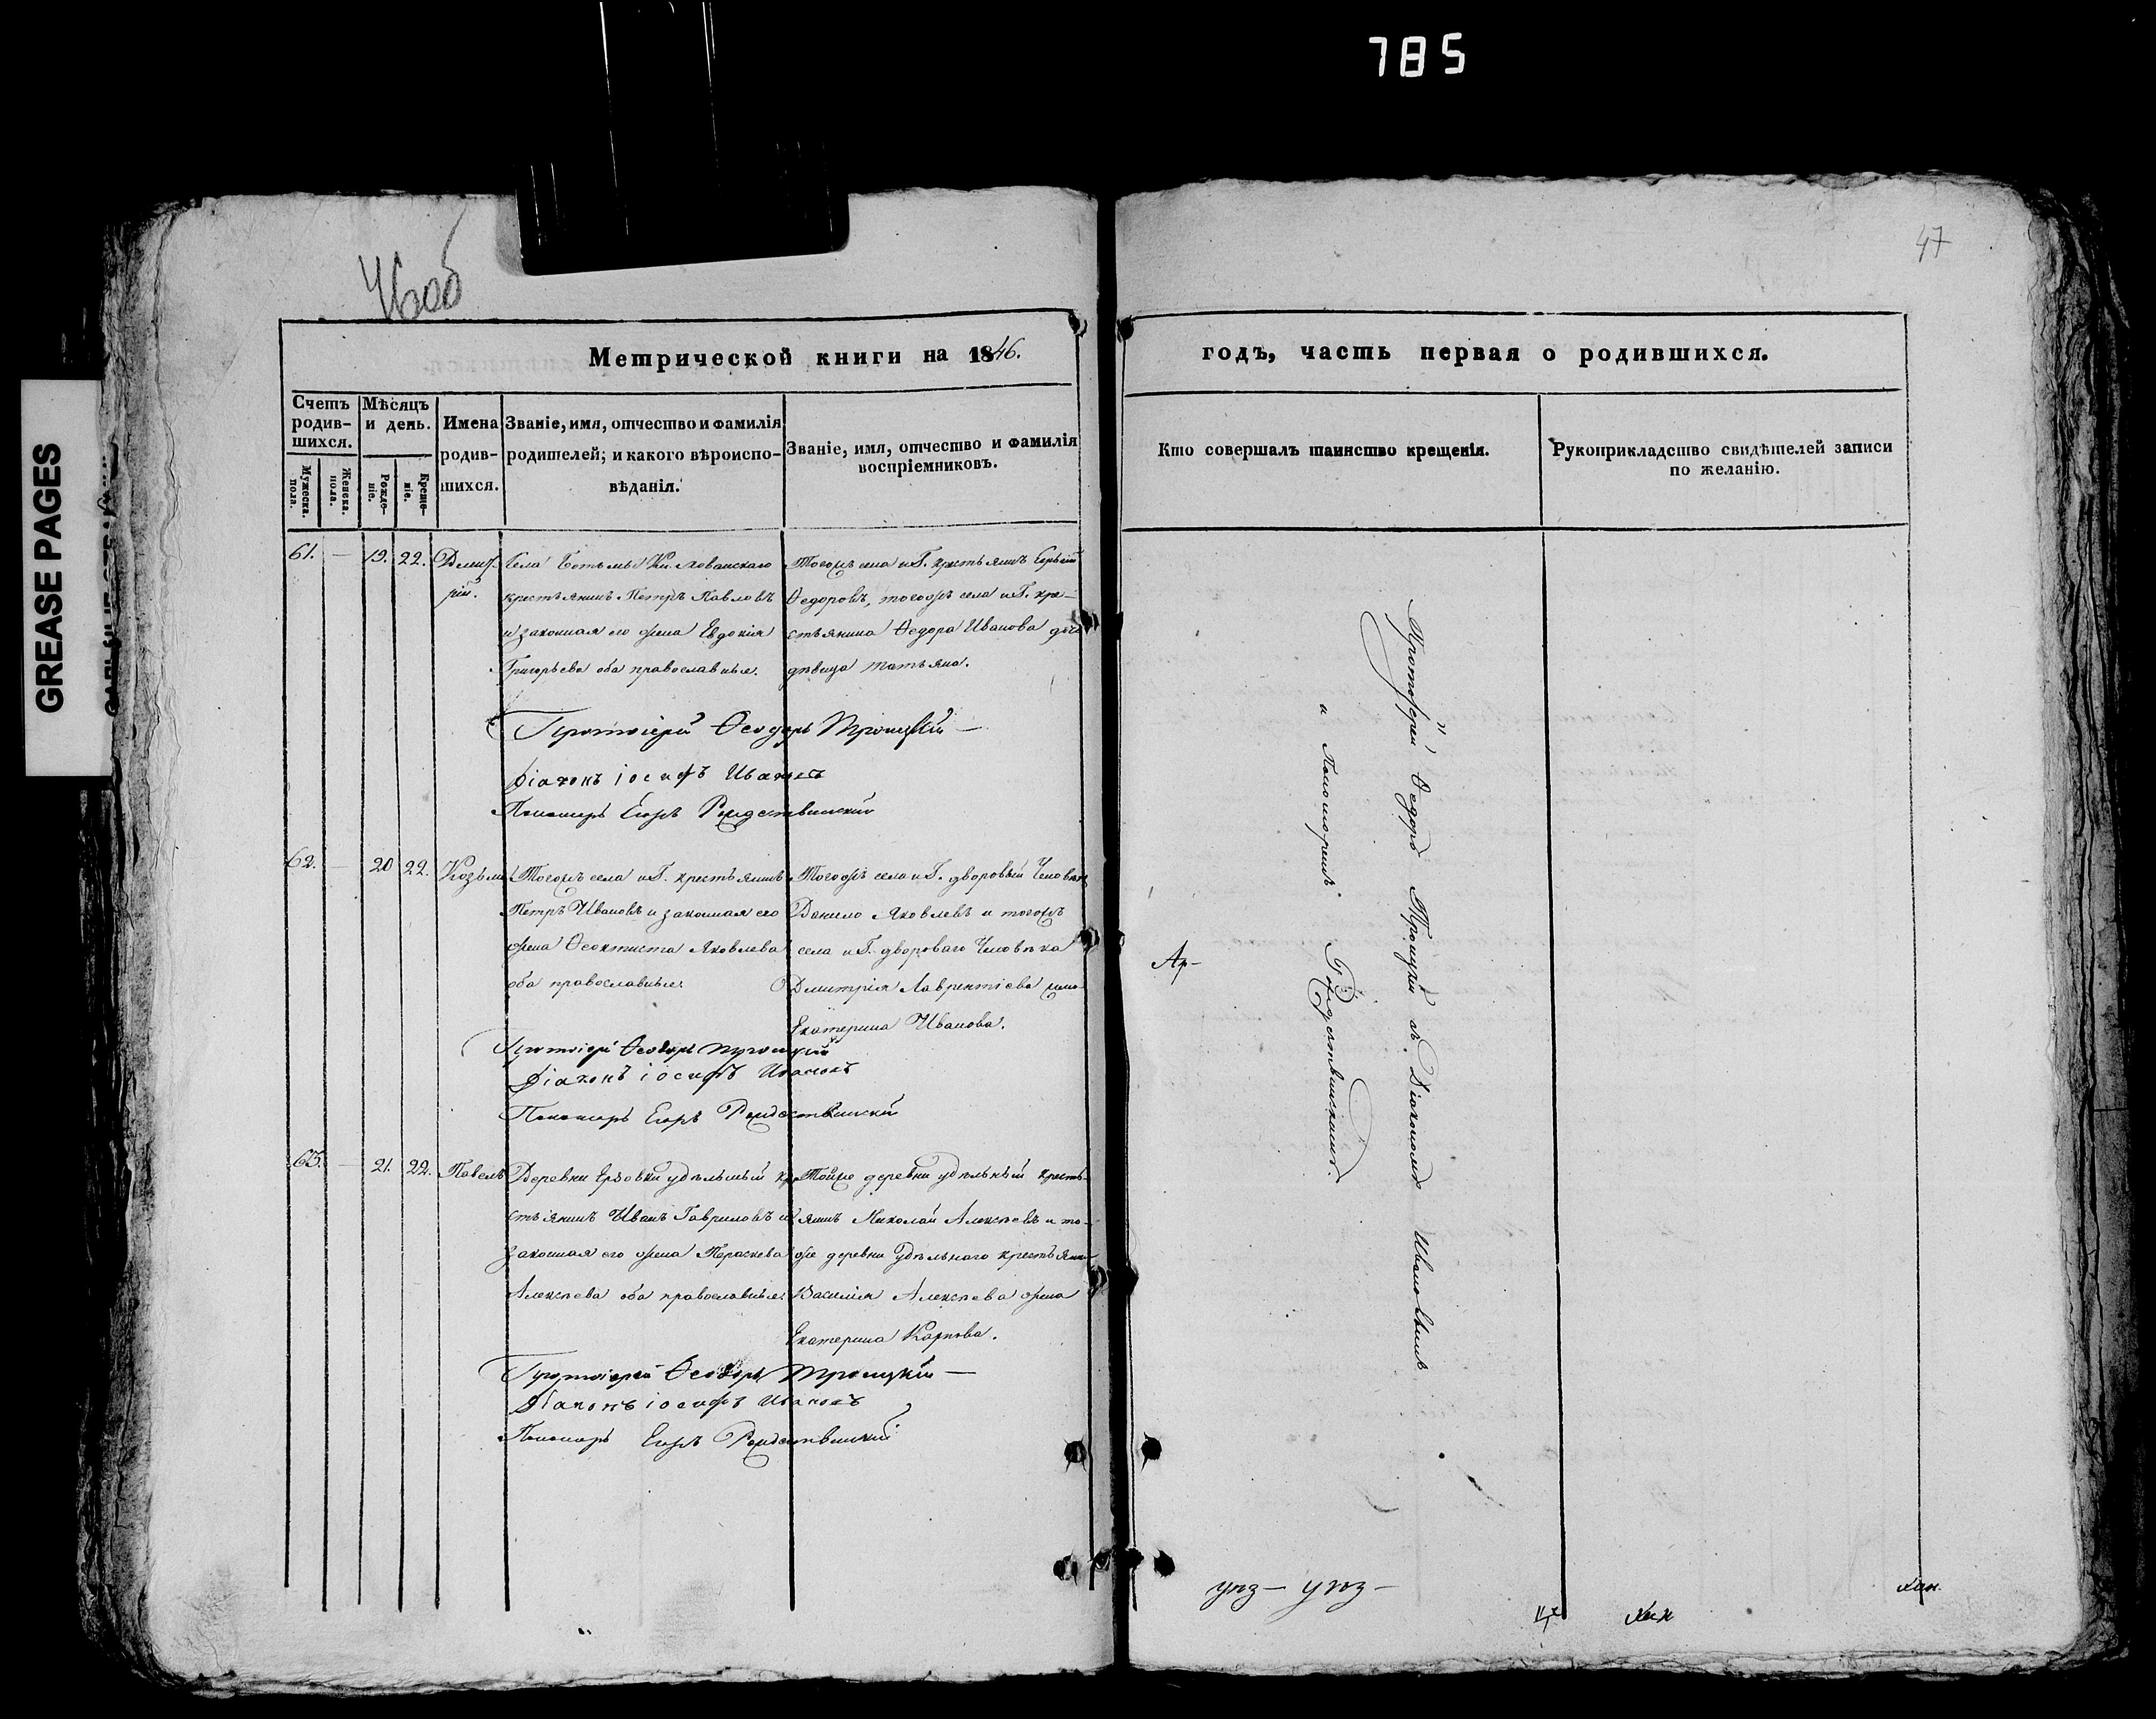 785
GREASE PAGES
46об
47
Метрической книги на 1846.
годъ, часть первая о родившихся.
Счетъ родив-шихся.
Мужеска пола.
Женска пола.
Мѣсяцъ и день.
Рожде-ніе.
Креще-ніе.
Имена родив-шихся.
Званіе, имя, отчество и фамилія
родителей; и какого вѣроиспо-
вѣданія.
Званіе, имя, отчество и фамилія
воспріемниковъ.
Кто совершалъ таинство крещенія.
Рукоприкладство свидѣтелей записи
по желанію.
61. — 19. 22. Дмит-
рій.
Села Ботьмы Кн.
крестьянинъ Петръ Павловъ
и законная его жена Евдокія
Григорьева оба православные.
Тогожъ села и Г. крестьянинъ
Ѳедоровъ, тогожъ села и Г. кре-
стьянина Ѳедора Иванова дочь
дѣвица Татьяна.
Протоіерей Ѳеодоръ Троицкій —
Діаконъ Іосифъ Ивановъ
Пономарь Егоръ Рождественскій
62. — 20 22. Козьма
Тогожъ села и Г. крестьянинъ
Петръ Ивановъ и законная его
жена Ѳеоктиста Яковлева
оба православные.
Тогожъ села и Г. дворовый человѣкъ
Данило Яковлевъ и тогожъ
села и Г. двороваго человѣка
Дмитрія Лаврентіева жена
Екатерина Иванова.
Протоіерей Ѳеодоръ Троицкій
Діаконъ Іосифъ Ивановъ
Пономарь Егоръ Рождественскій
63. — 21. 22. Павелъ
Деревни Ерзовки удѣльный кре-
стьянинъ Иванъ Гавриловъ и
законная его жена Параскева
Алексѣева оба православные.
Тойже деревни удѣльный кресть-
янинъ Николай Алексѣевъ и той-
же деревни удѣльнаго крестьянина
Василія Алексѣева жена
Екатерина Карпова.
Протоіерей Ѳеодоръ Троицкій —
Діаконъ Іосифъ Ивановъ
Пономарь Егоръ Рождественскій
Протоіерей Ѳедоръ Троицкій съ Діакономъ Ивановымъ
и Пономоремъ Рождественскимъ.
Ар-